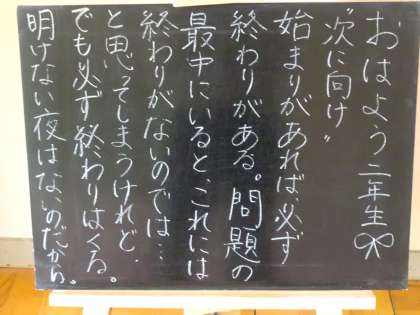 おはよう二年生
"次に向け"
始まりがあれば、必ず
終わりがある。問題の
最中にいると、これには
終わりがないのでは…
と思ってしまうけれど、
でも必ず終わりはくる。
明けない夜はないのだから。